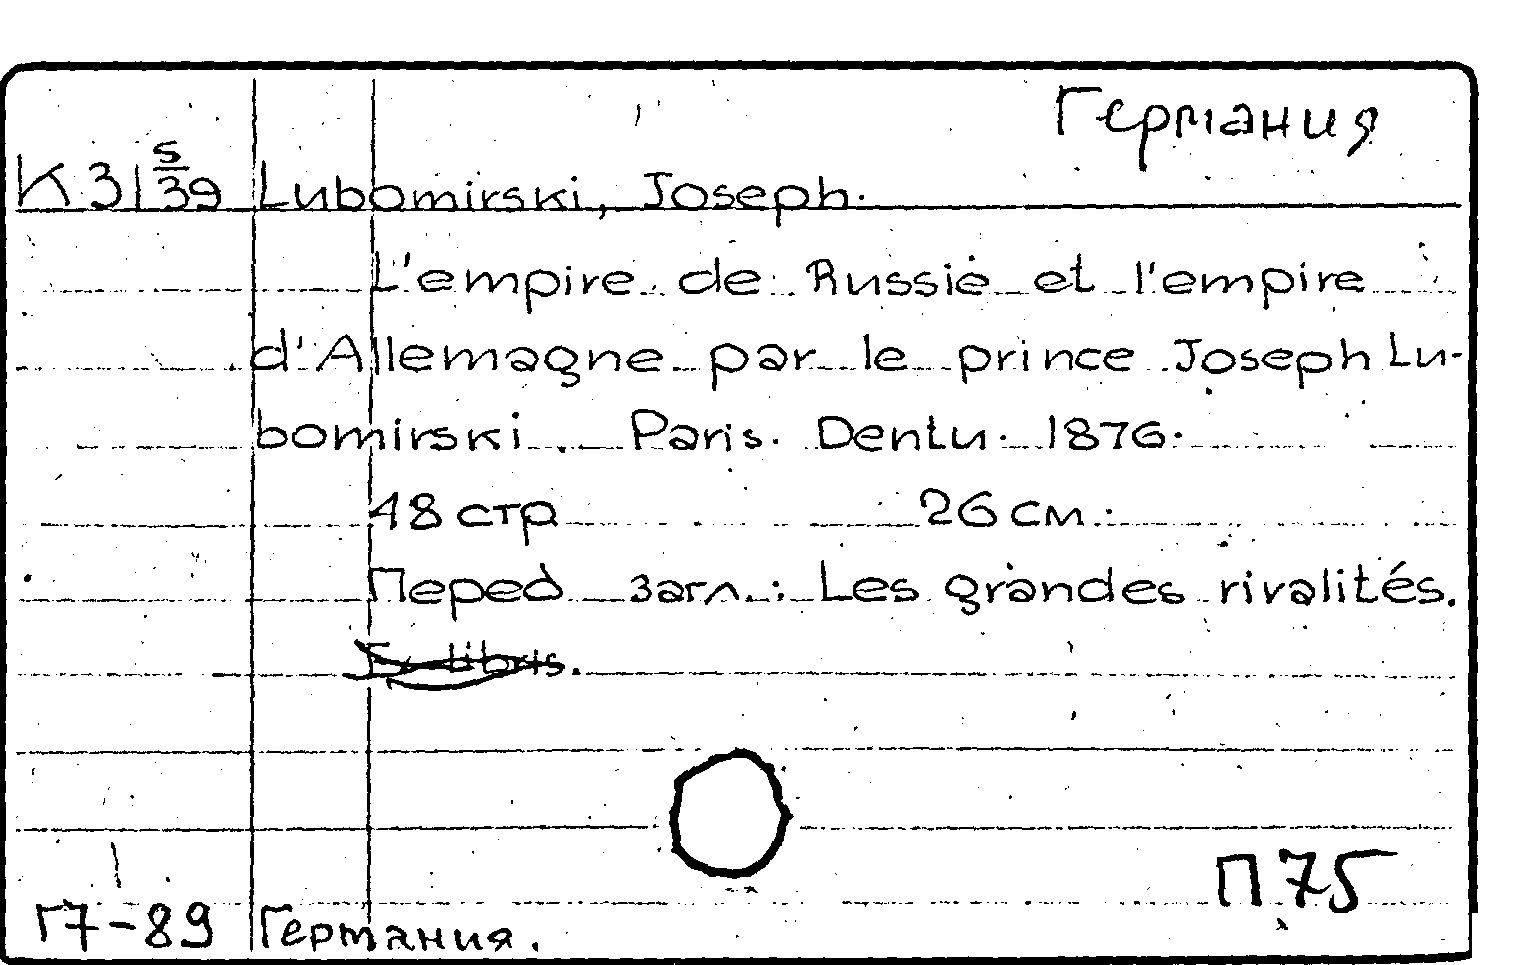 Германия
К 31 5/39 Lubomirski, Joseph.
L'empire de Russie et l'empire
d'Allemagne par le prince Joseph Lu-
bomirski. Paris. Dentu. 1876.
48 стр 26 см.
Перед загл.: Les grandes rivalités.
Ex-libris.
П75
Г7-89 Германия.